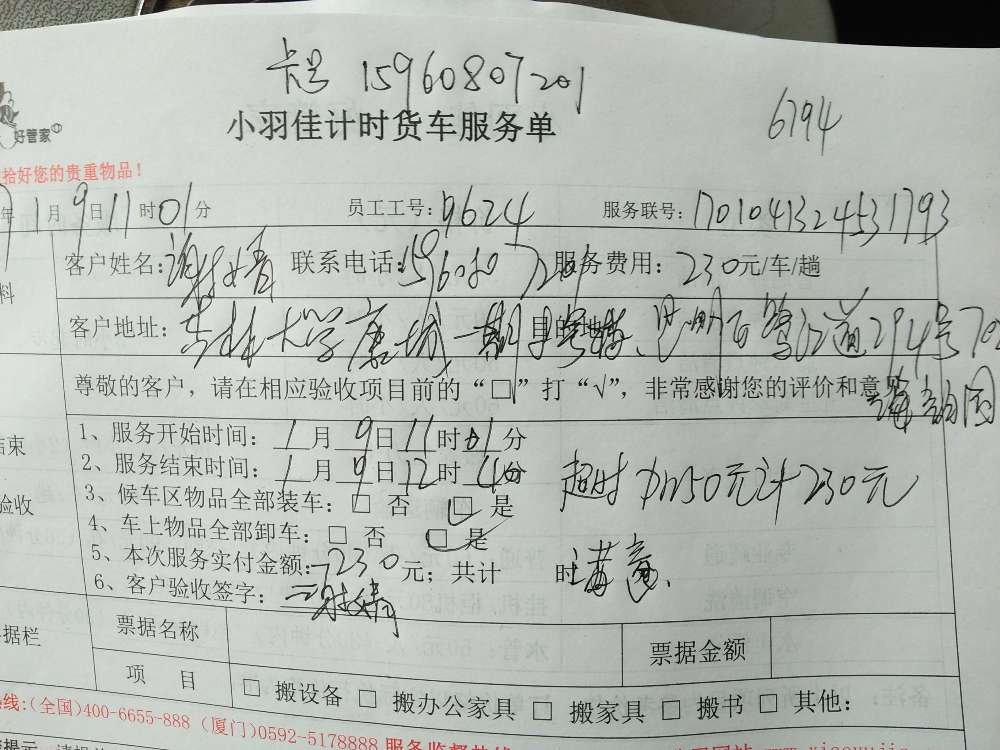 卡号 15960807201
6794
好管家
小羽佳计时货车服务单
拾好您的贵重物品!
年1月9日11时01分 员工工号:9624 服务联号:17010413244531793
料 客户姓名: 联系电话:15960807201 服务费用:230元/车/趟
客户地址: 大学康城一期 目的地: 294号702
尊敬的客户,请在相应验收项目前的“□”打“√”,非常感谢您的评价和意见
结束 1、服务开始时间:1月9日11时01分
2、服务结束时间:1月9日12时4分
超时加50元计230元
验收 3、候车区物品全部装车:□ 否 □ 是
4、车上物品全部卸车:□ 否 □ 是
5、本次服务实付金额:230元;共计 时 满意
6、客户验收签字:
据栏 票据名称 票据金额
项 目 □ 搬设备 □ 搬办公家具 □ 搬家具 □ 搬书 □ 其他:
热线:(全国)400-6655-888 (厦门)0592-5178888 服务监督热线